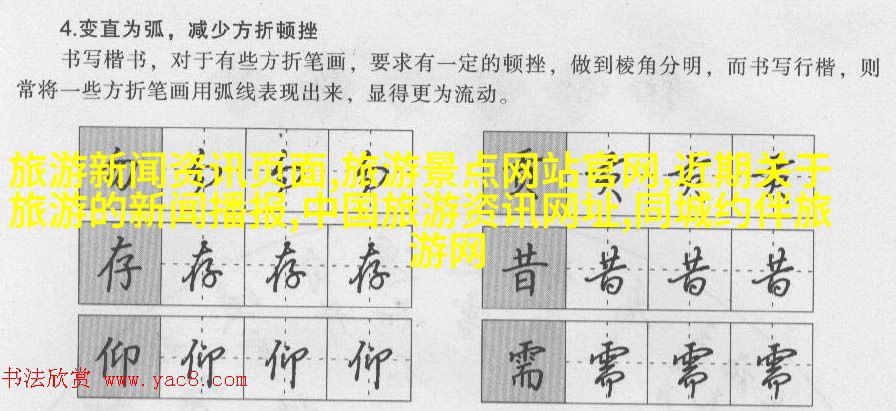 4.变直为弧，减少方折顿挫
书写楷书，对于有些方折笔画，要求有一定的顿挫，做到棱角分明，而书写行楷，则
常将一些方折笔画用弧线表现出来，显得更为流动。
旅游新闻资讯页面,旅游景点网站官网,近期关于
旅游的新闻播报,中国旅游资讯网址,同城约伴旅
游网
存 存 存 存
昔 昔 昔 昔
仰 仰 仰 仰
需 需 需 需
书法欣赏 www.yac8.com